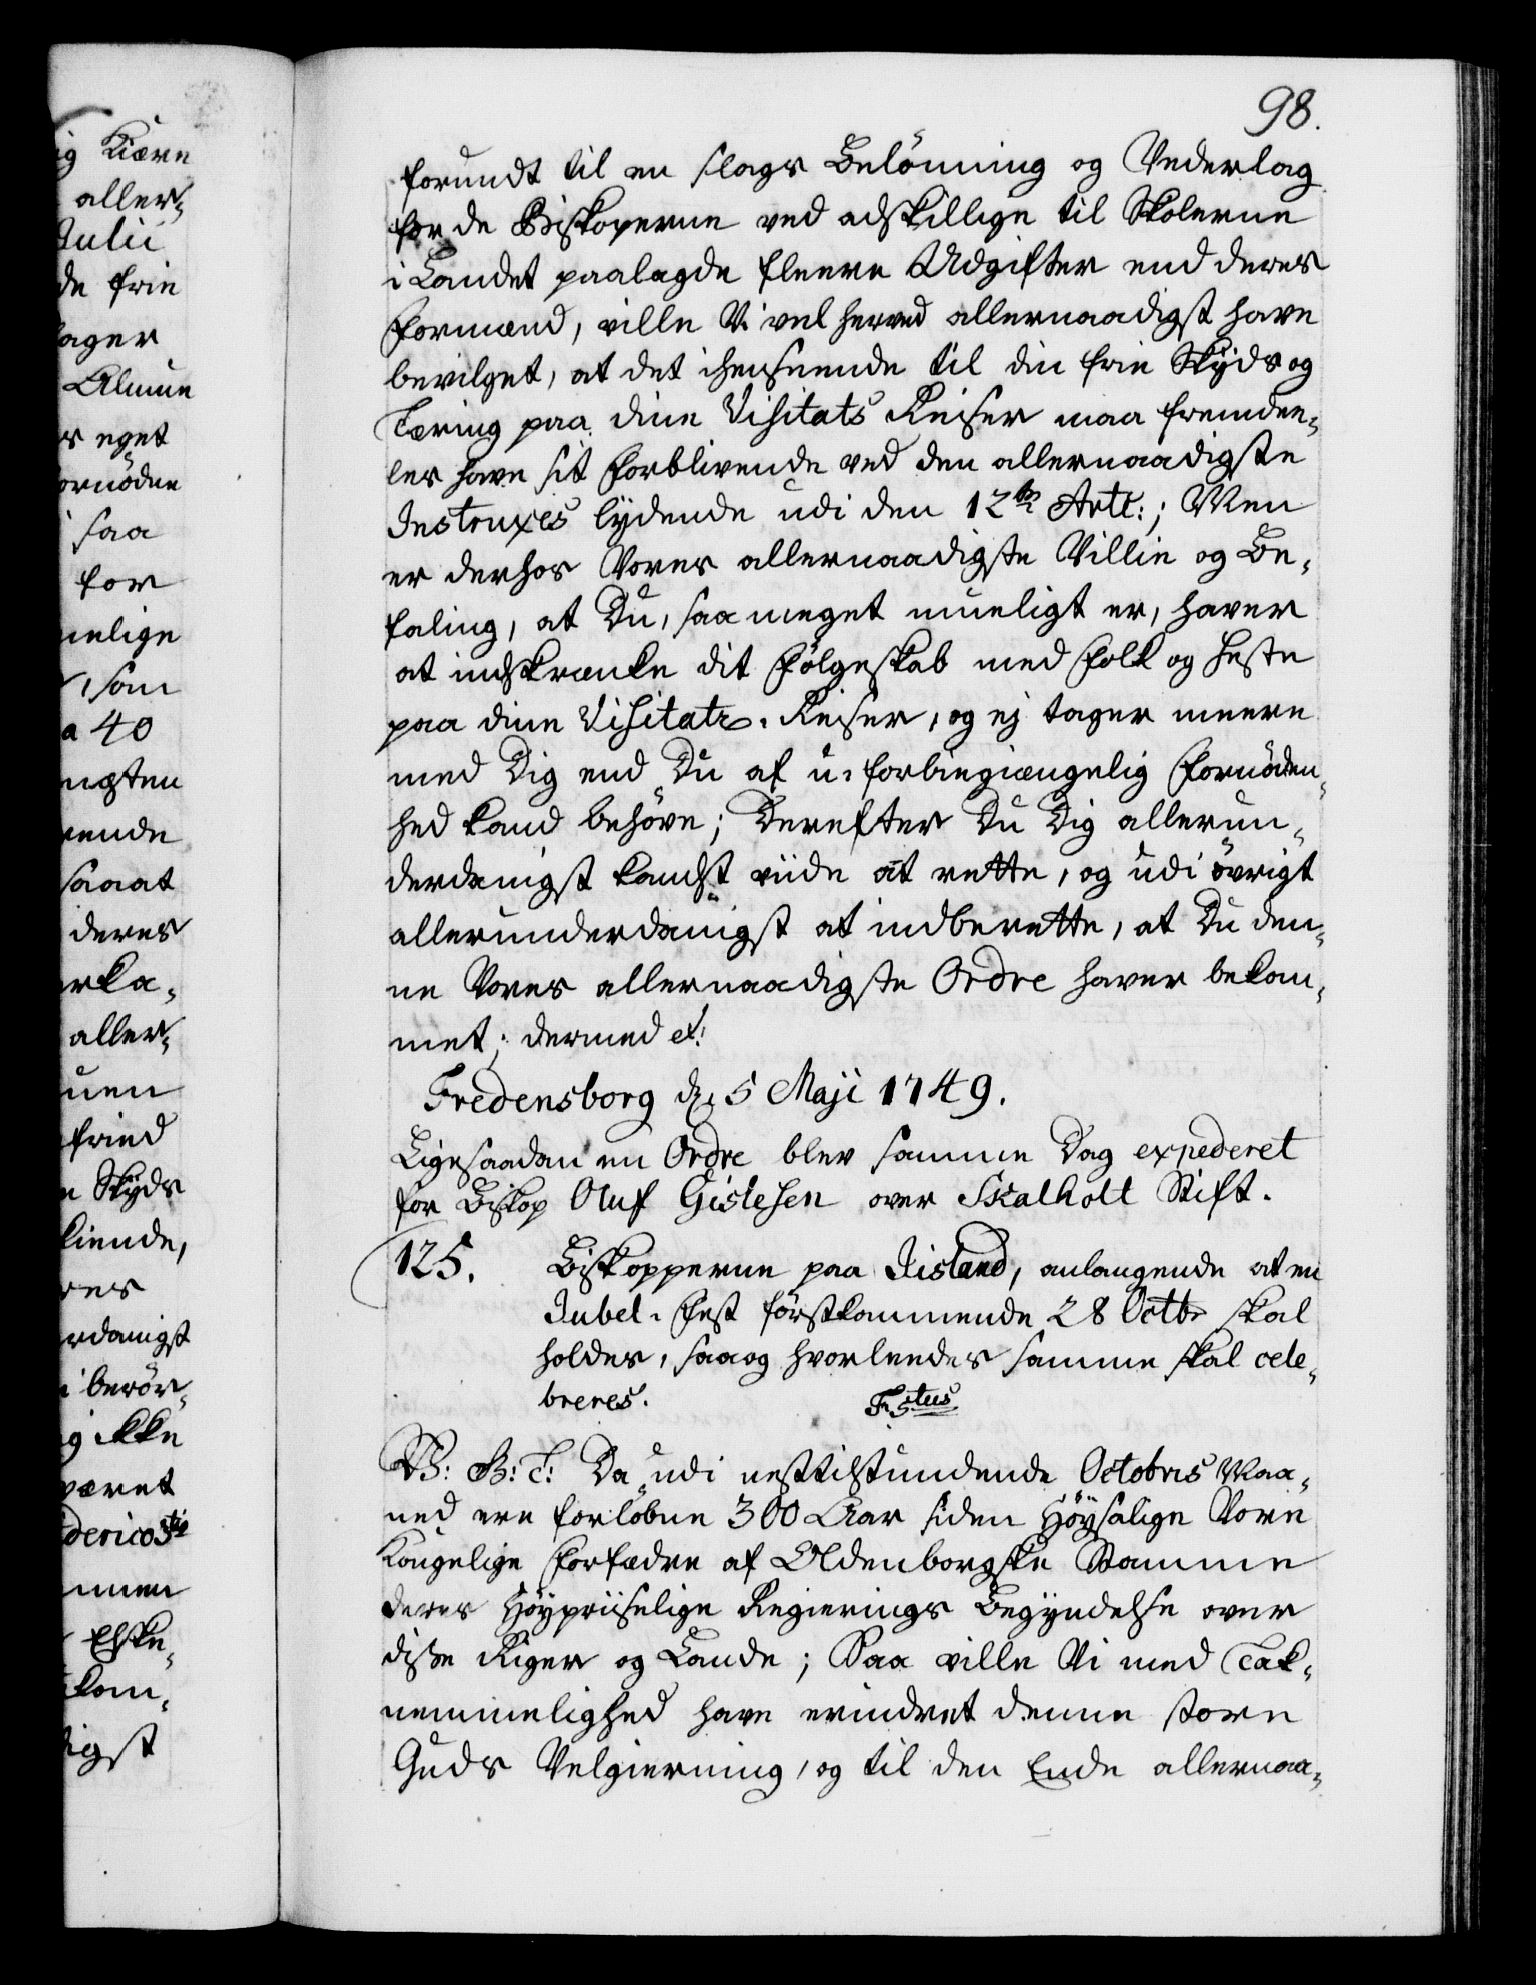 98.
forundt til en slags Belönning og Vederlag
for de Biskoperne ved adskillige til Skolerne
i Landet paalagde fleere Udgifter end deres
Formænd, ville Vi vel herved allernaadigst have
bevilget, at det ihenseende til din frie Skyds og
Tæring paa dine Visitats Reiser maa fremdee-
les have sit Forblivende ved den allernaadigste
Instruxes lydende udi den 12te Artl:; Men
er derhos Vores allernaadigste Villie og Be-
faling, at Du, saa meget mueligt er, haver
at indskrænke dit Fölgeskab med Folk og Heste
paa dine Visitatz-Reiser, og ej tager meere
med Dig end Du af u-forbiegiængelig Fornöden-
hed kand behöve; Derefter Du Dig allerun-
derdanigst kandst viide at rette, og udi övrigt
allerunderdanigst at indberette, at Du den-
ne Vores allernaadigste Ordre haver bekom-
met; dermed etc:
Fredensborg d. 5 Maji 1749.
Ligesaadan en Ordre blev samme Dag expederet
for Biskop Oluf Gislesen over Skalholt Stift.
125. Biskopperne paa Iisland, anlangende at en
Jubel-Fest förstkommende 28 Octbr skal
holdes, saa og hvorleedes samme skal cele-
breres.
F. 5tus
V: G: T: Da udi nesttilstundende Octobris Maa-
ned ere forlöbne 300 Aar siden Höysalige Vore
Kongelige Forfædre af Oldenborgske Stamme
deres Höypriiselige Regierings Begyndelse over
disse Riger og Lande; Saa ville Vi med Tak-
nemmelighed have erindret denne store
Guds Velgierning, og til den Ende allernaa-